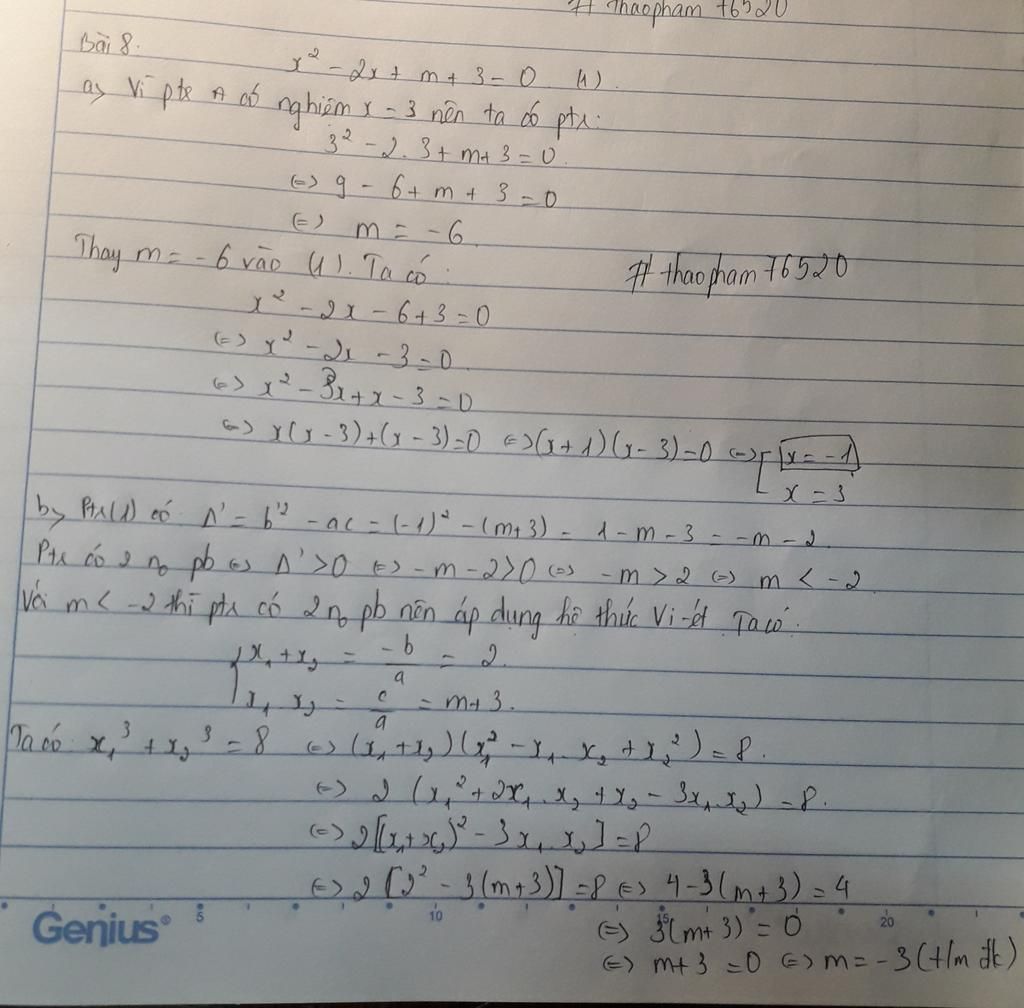 # thaopham 76520
Bài 8.
x² - 2x + m + 3 = 0 (1).
a, Vì ptr 1 có nghiệm x = 3 nên ta có ptr:
3² - 2.3 + m + 3 = 0.
<=> 9 - 6 + m + 3 = 0
<=> m = -6
Thay m = -6 vào (1). Ta có:
# thaopham 76520
x² - 2x - 6 + 3 = 0
<=> x² - 2x - 3 = 0
<=> x² - 3x + x - 3 = 0
<=> x(x-3)+(x-3)=0 <=> (x+1)(x-3)=0 <=> [x = -1
x = 3
b, Ptr(1) có Δ' = b'² - ac = (-1)² - (m+3) = 1 - m - 3 = -m - 2
Ptr có 2 no pb <=> Δ' > 0 <=> -m - 2 > 0 <=> -m > 2 <=> m < -2
Với m < -2 thì ptr có 2 no pb nên áp dụng hệ thức Vi-ét. Ta có:
{x₁ + x₂ = -b/a = 2.
x₁ x₂ = c/a = m+3.
Ta có x₁³ + x₂³ = 8 <=> (x₁ + x₂)(x₁² - x₁ x₂ + x₂²) = 8.
<=> 2 (x₁² + 2x₁.x₂ + x₂ - 3x₁.x₂) = 8.
<=> 2[(x₁+x₂)² - 3x₁.x₂] = 8
<=> 2 [2² - 3(m+3)] = 8 <=> 4-3(m+3) = 4
Genius® 5 10 15 20
<=> 3(m+3) = 0
<=> m+3 = 0 <=> m = -3 (t/m đk)